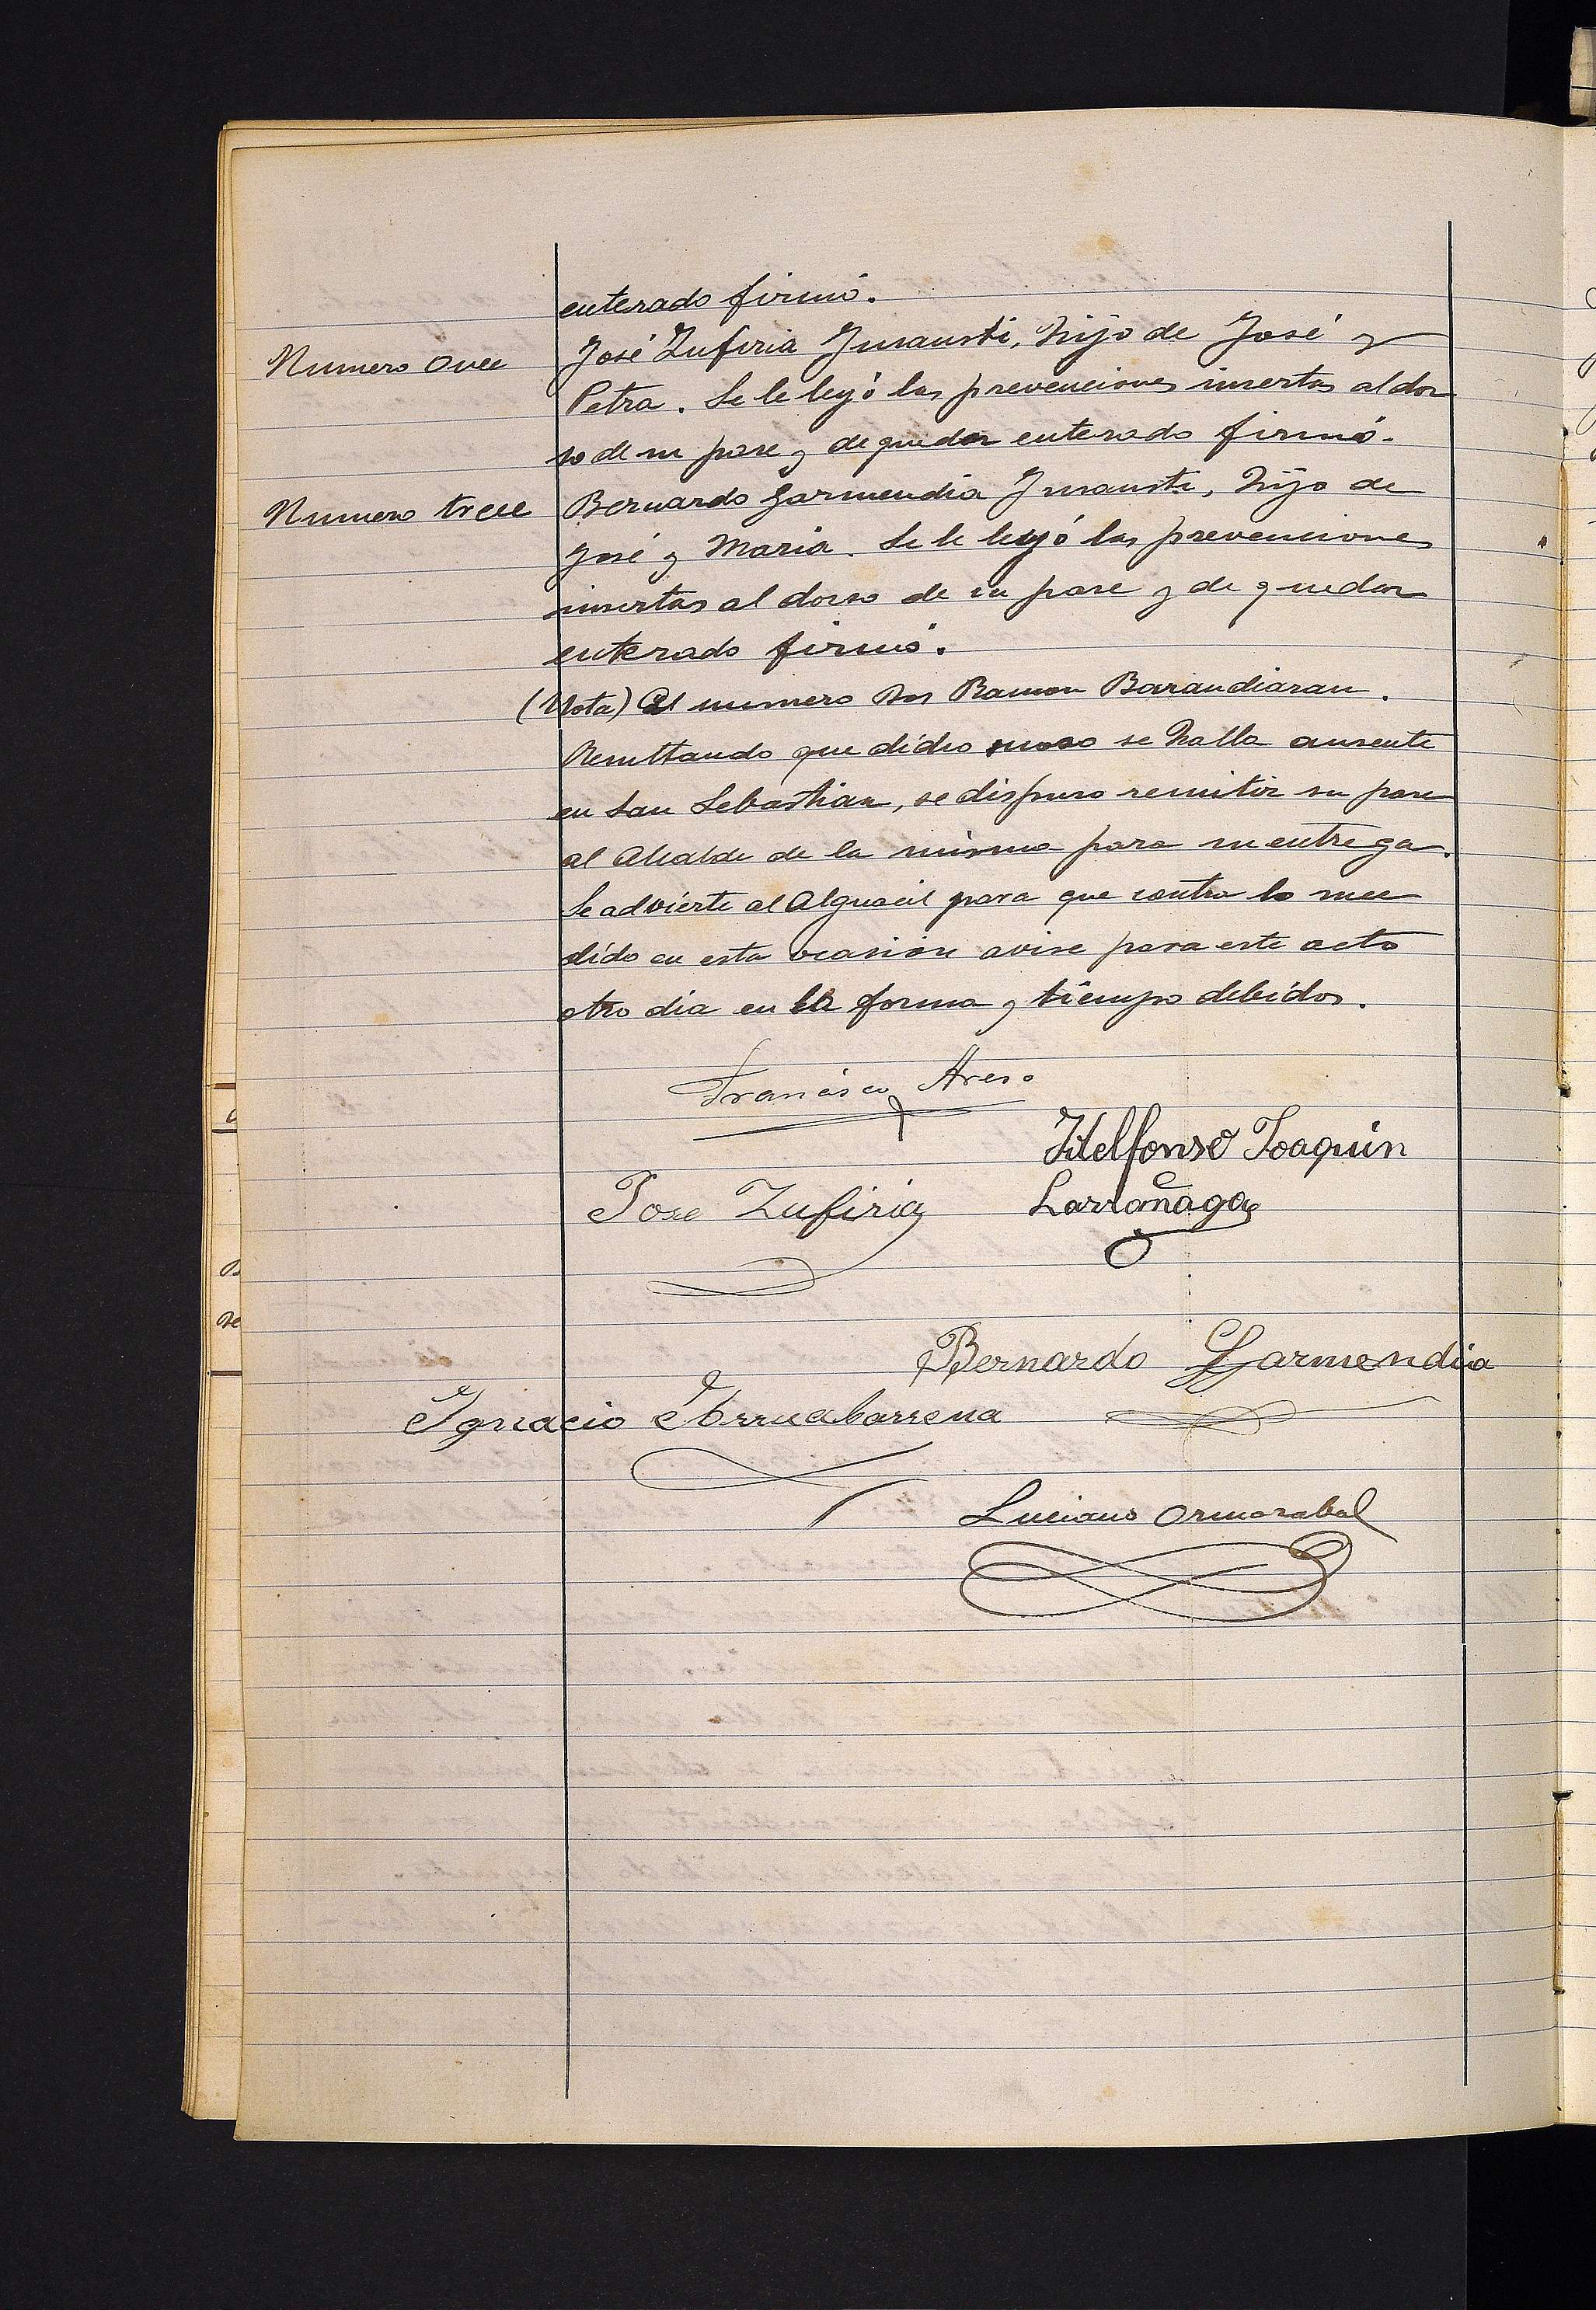 enterado firmó.
Numero once José Zufiria Insausti, hijo de José y
Petra. Se le leyó las prevenciones insertas al dor
so de su pase y de quedar enterado firmó.
Numero trece Bernardo Garmendia Insausti, hijo de
José y Maria. Se le leyó las prevenciones
insertas al dorso de su pase y de quedar
enterado firmó.
(Nota) Al numero dos Ramon Barandiaran.
Resultando que dicho mozo se halla ausente
en San Sebastian, se dispuso remitir su pase
al Alcalde de la misma para su entrega.
Se advierte al Alguacil para que contra lo suce
dido en esta ocasión avise para este acto
otro dia en la forma y tiempo debidos.
Francisco Areso
Ildelfonso Joaquin
Larrañaga
Jose Zufiria
Bernardo Garmendia
Ignacio Arruabarrena
Luciano Ormazabal